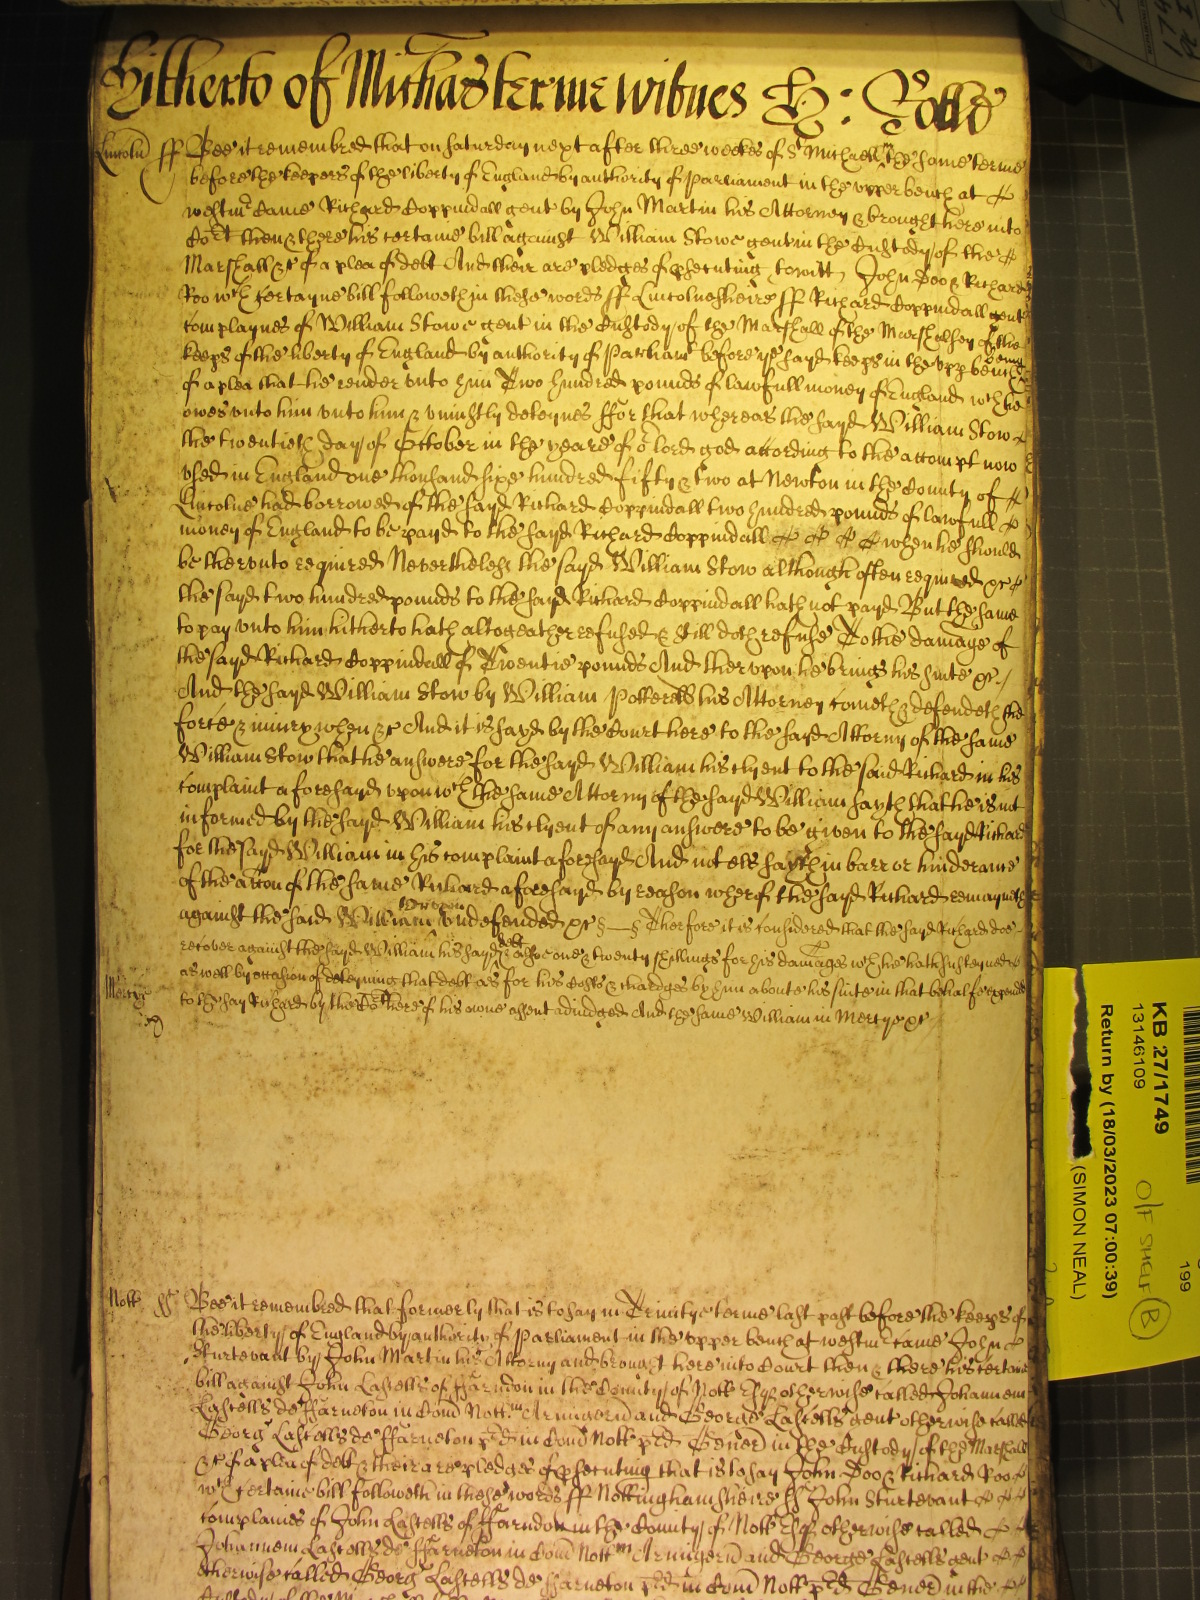 Hitherto of Michas terme witnes H: Rolle
Lincoln ss Bee it remembred that on Saturday next after three weekes of St Michaell the same terme
before the keepers of the liberty of England by authority of Parliament in the upper bench at
westmr Came Richard Coppindall gent by John Martin his Attorney & brought here into
Cort then & there his certaine bill against William Stowe gent in the Custody of the
Marshall &c of a plea of debt And their are pledges of psecuting towitt John Doo & Richard
Roo wch certayne bill followeth in these words ss Lincolnesheire ss Richard Coppindall gent
complaynes of William Stowe gent in the Custody of the Marshall of the Marshalsey of the
keeps of the liberty of England by authority of Parliamt before ye sayd keeps in the upp bench being
of a plea that he render unto him Two hundred pounds of lawfull money of England wch he
owes unto him unto him & uniustly deteynes ffor that whereas the sayd William Stow
the twentieth day of October in the yeare of or lord god according to the accompt now
used in England one thousand sixe hundred fifty & two at Newton in the County of
Lincolne had borrowed of the sayd Richard Coppindall two hundred pounds of lawfull
money of England to be payd to the sayd Richard Coppindall when he should
be therunto required Neverthelesse the sayd William Stow although often required &c
the sayd two hundred pounds to the sayd Richard Coppindall hath not payd But the same
to pay unto him hitherto hath altogeather refused & still doth refuse To the damage of
the sayd Richard Coppindall of Twentie pounds And therupon he brings his suite &c /
And the sayd William Stow by William Potterells his Attorney cometh & defendeth the
force & iniury when &c And it is sayd by the Court here to the sayd Attorny of the same
William Stow that he answere for the sayd William his clyent to the said Richard in his
complaint aforesayd upon wch the same Attorny of the sayd William sayth that he is not
informed by the sayd William his clyent of any answere to be given to the sayd Richard
for the sayd William in his complaint aforesayd And not els sayth in barr or hinderance
of the accon of the same Richard aforesayd by reason wherof the sayd Richard remayneth
against the said William therupon undefended &c § — § Therfore it is considered that the sayd Richard doe
recover against the sayd William his sayd debt & alsoe one & twenty shillings for his damages wch he hath susteyned
as well by occasion of deteyning that debt as for his Costs & chardges by him aboute his suite in that behalfe expended
Mercye
to the sayd Richard by the Cort here of his owne assent adiudged And the same William in Mercye &c
Nott ss Bee it remembred that formerly that is to say in Trinity terme last past before the keeps of
the liberty of England by authority of Parliament in the upper bench at westmr came John
Sturtevant by John Martin his Attorny and brought here into Court then & there his certaine
bill against John Lascells of ffarndon in the County of Nott Esqr otherwise called Johannem
Lascells de ffarneton in Com Nottm Armigerum and George Lascells gent otherwise called
Georg Lascells de ffarneton pd in Com Nott pd Generu in the Custody of the Marshall
&c of a plea of debt & their are pledges of psecuting that is to say John Doo & Richard Roo
wch certaine bill followeth in these words ss Nottinghamsheire ss John Sturtevant
complaines of John Lascells of ffarndon in the County of Nott Esqr otherwise called
Johannem Lascells de ffarneton in Com Nottm Armigerum and George Lascells gent
otherwise called Georg Lascells de ffarneton pd in Com Nott pd Generu in the
KB 27/1749
13146109
Return by (18/03/2023 07:00:39)
(SIMON NEAL)
O/F SHELF B
199